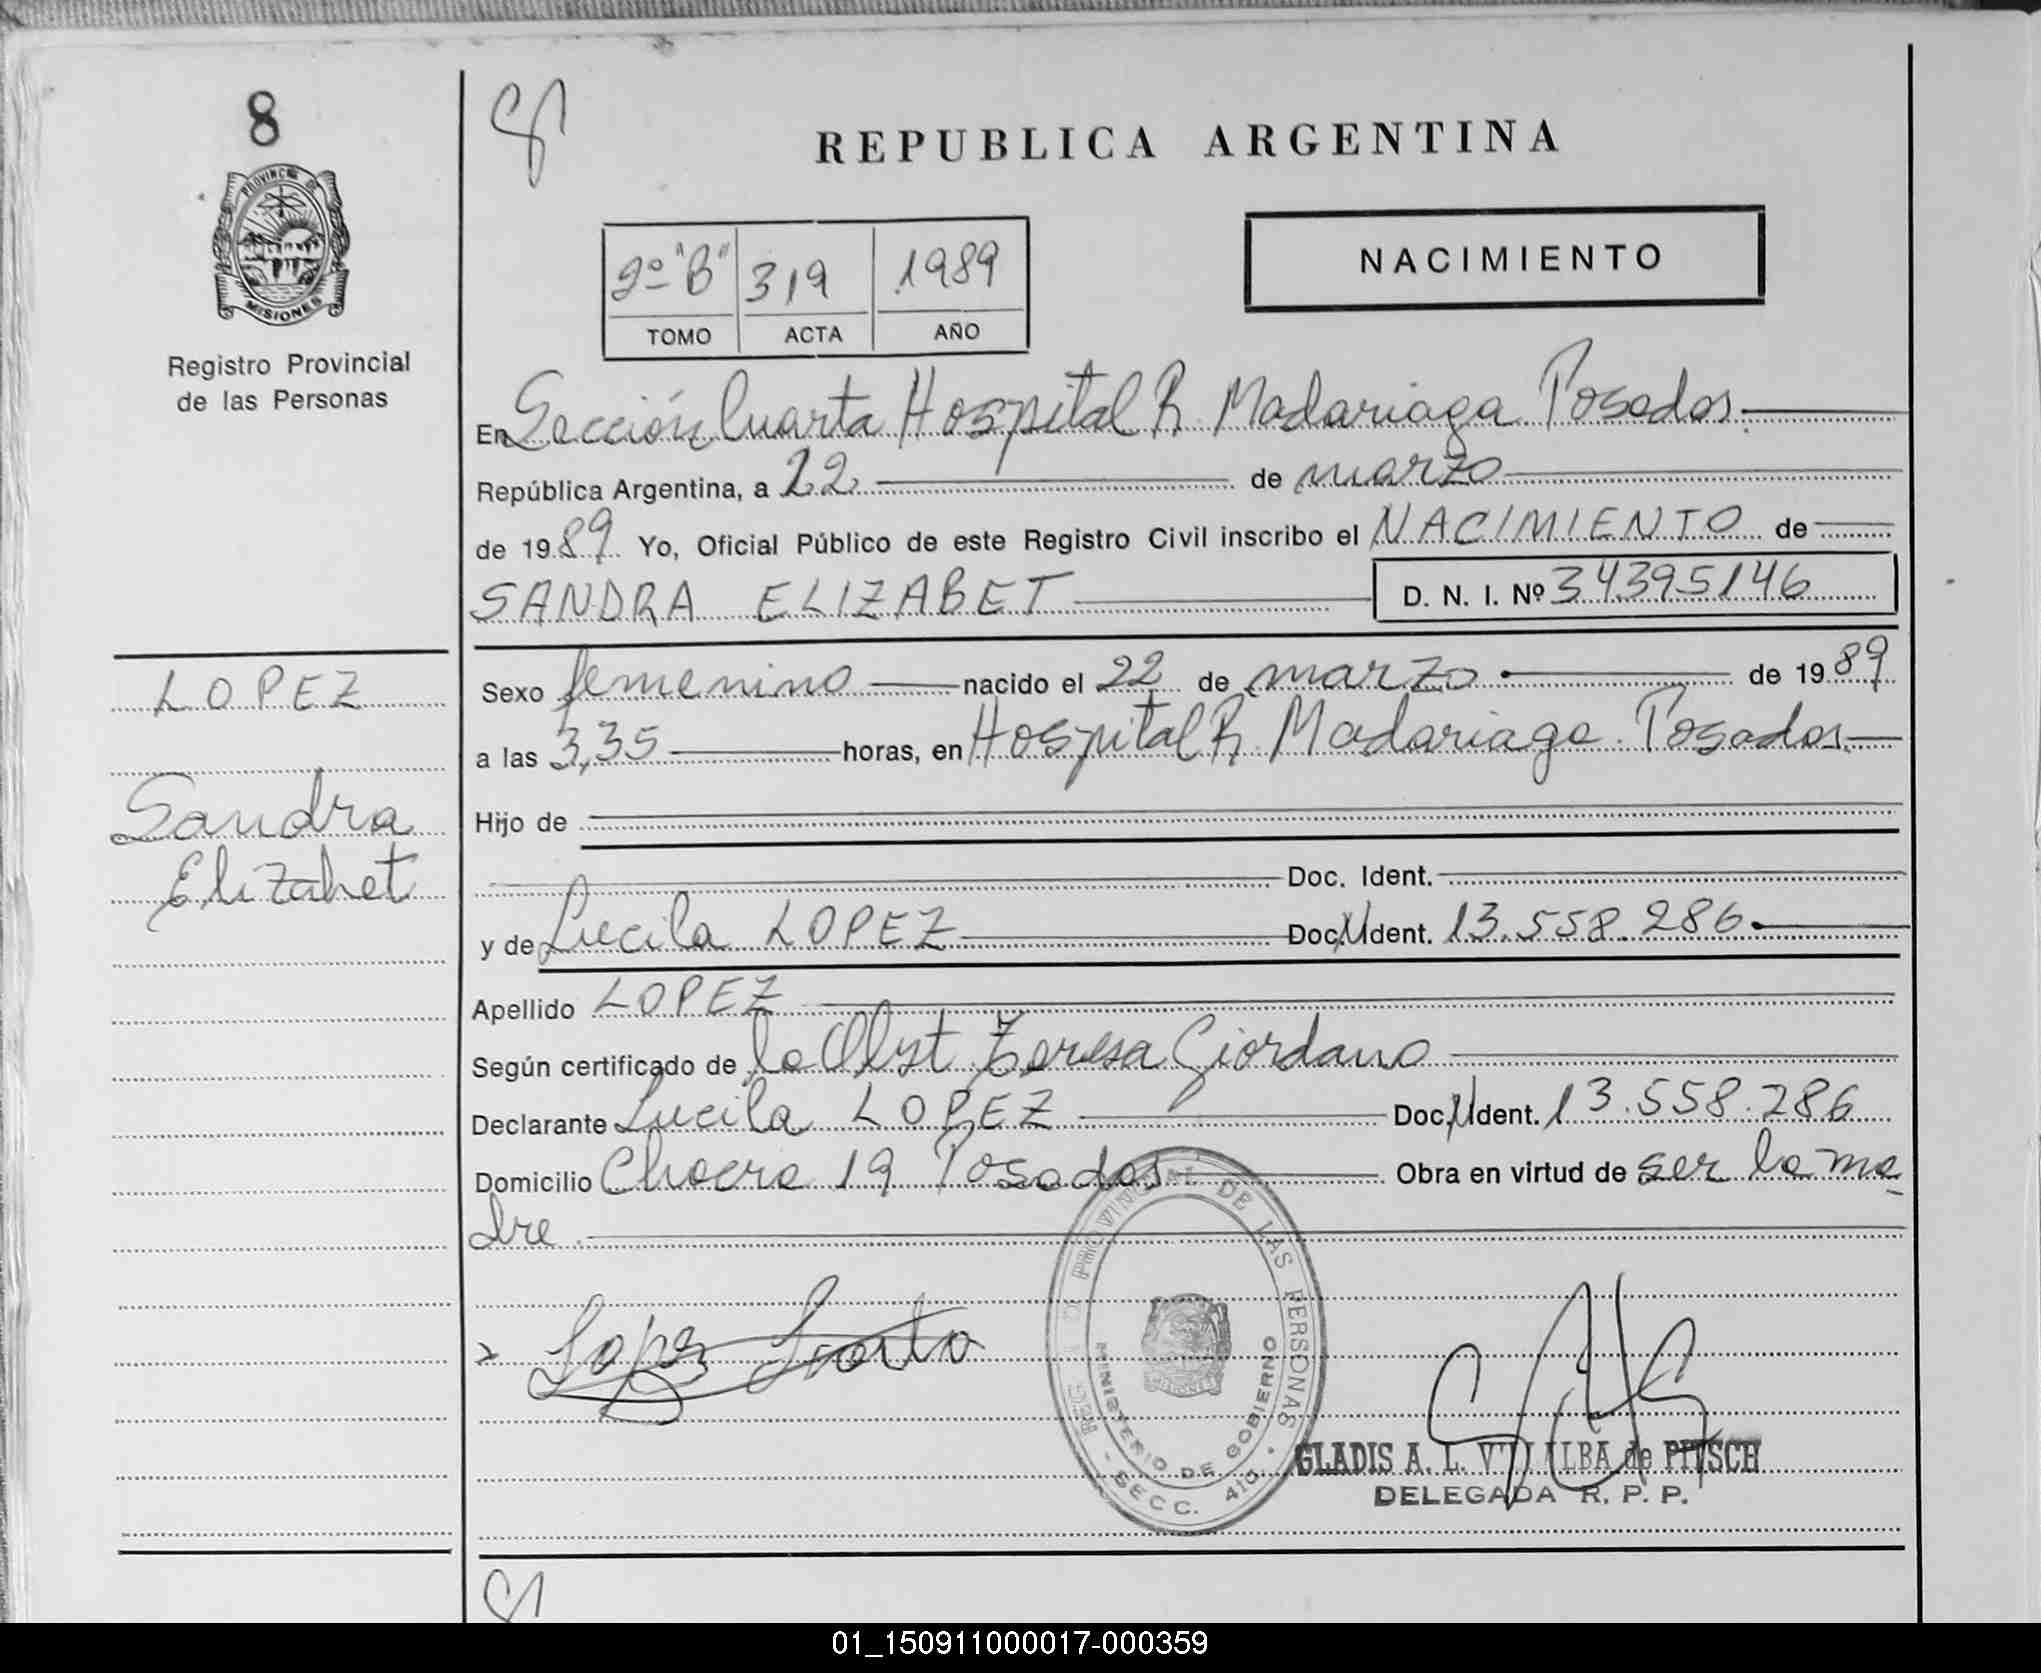 8
PROVINCIA DE
MISIONES
Registro Provincial
de las Personas
REPUBLICA ARGENTINA
2º "B" 319 1989
TOMO ACTA AÑO
NACIMIENTO
En Sección Cuarta Hospital R. Madariaga. Posadas.
República Argentina, a 22 de marzo
de 1989 Yo, Oficial Público de este Registro Civil inscribo el NACIMIENTO de
SANDRA ELIZABET D. N. I. Nº 34395146
LOPEZ
Sandra
Elizabet
Sexo femenino nacido el 22 de marzo de 1989
a las 3,35 horas, en Hospital R. Madariaga. Posadas.
Hijo de
Doc. Ident.
y de Lucila LOPEZ Doc. Ident. 13.558.286
Apellido LOPEZ
Según certificado de la Obst. Teresa Giordano
Declarante Lucila LOPEZ Doc. Ident. 13.558.286
Domicilio Chacra 19 Posadas Obra en virtud de ser la ma-
dre.
PROVINCIAL DE LAS PERSONAS
MINISTERIO DE GOBIERNO
MISIONES
SECC. 4ta.
GLADIS A. L. VILLALBA de PITSCH
DELEGADA R. P. P.
01_150911000017-000359